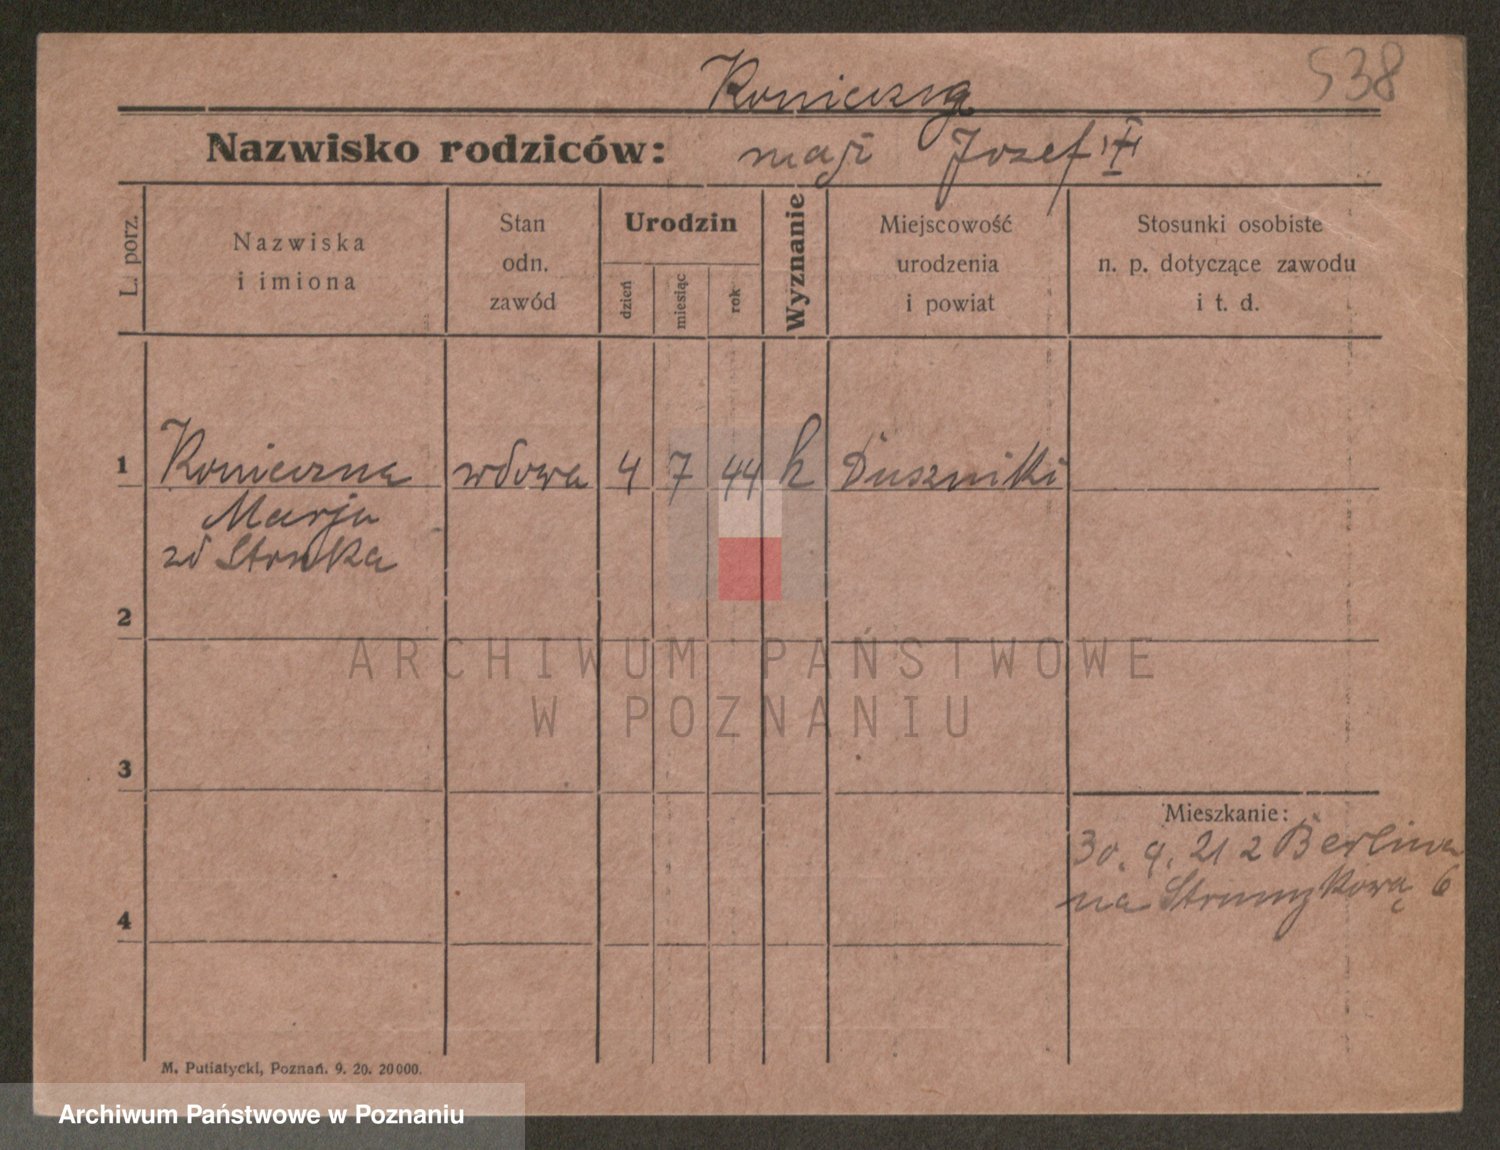 538
Konieczna
Nazwisko rodziców: mąż Józef
L. porz.
Nazwiska
i imiona
Stan
odn.
zawód
Urodzin
dzień
miesiąc
rok
Wyznanie
Miejscowość
urodzenia
i powiat
Stosunki osobiste
n. p. dotyczące zawodu
i t. d.
1 Konieczna wdowa 4 7 44 k Duszniki
Marja
zd Struka
2
3
4
Mieszkanie:
30. 9. 21 z Berlina
na Strumykową 6
M. Putiatycki, Poznań. 9. 20. 20000.
ARCHIWUM PAŃSTWOWE
W POZNANIU
Archiwum Państwowe w Poznaniu